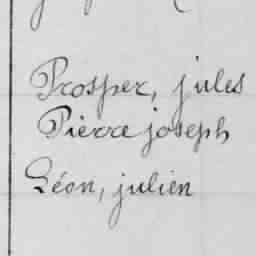 Prosper, jules
Pièrre joseph
Léon, julien